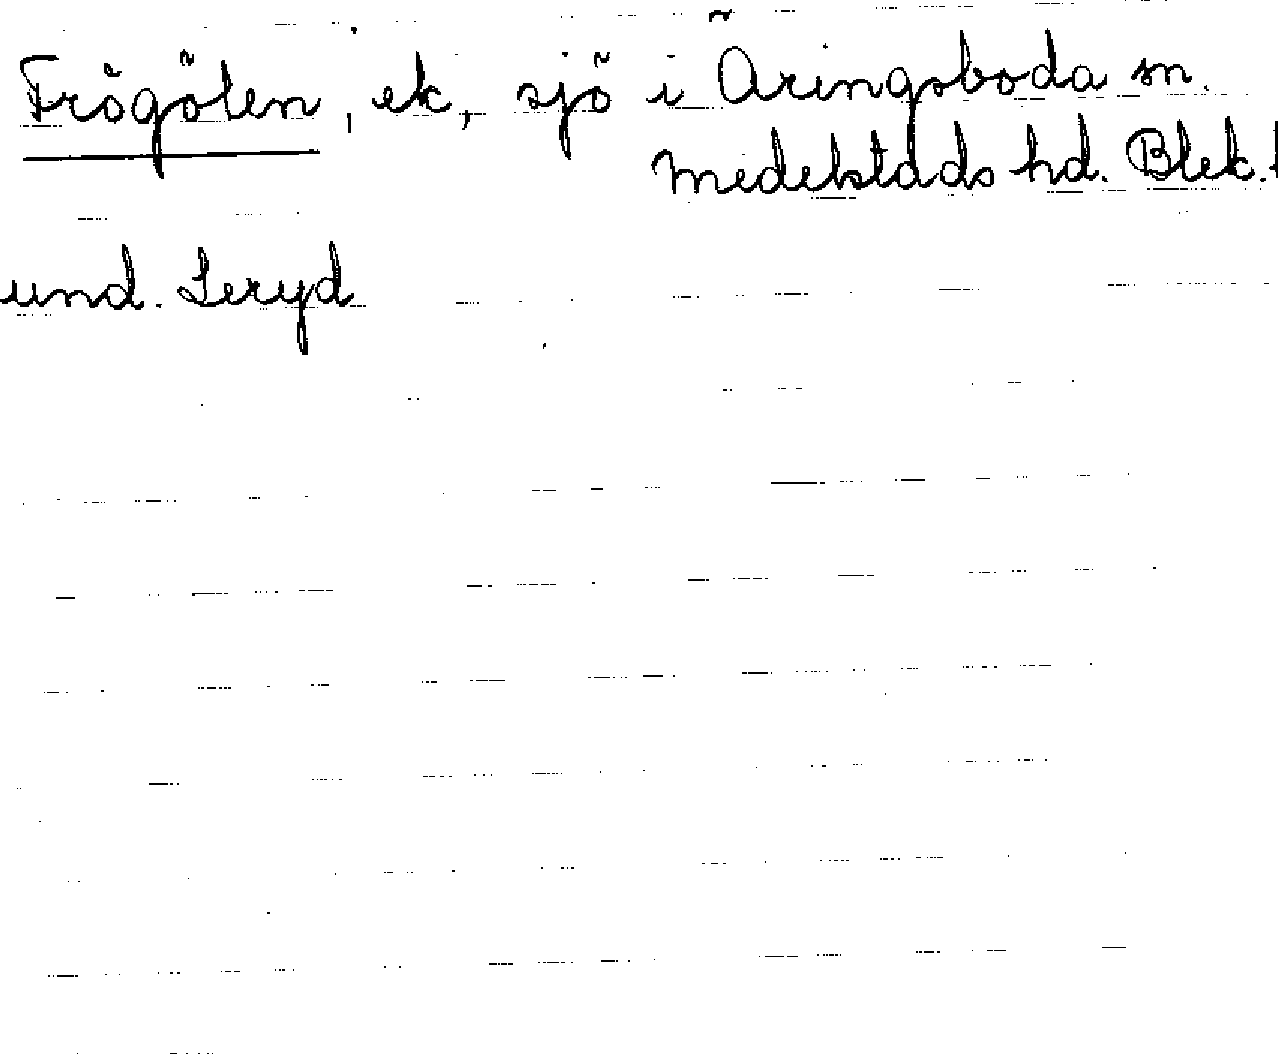 Frögölen, ek, sjö i Äringsboda sn.
Medelstads hd. Blek. l
und. Leryd